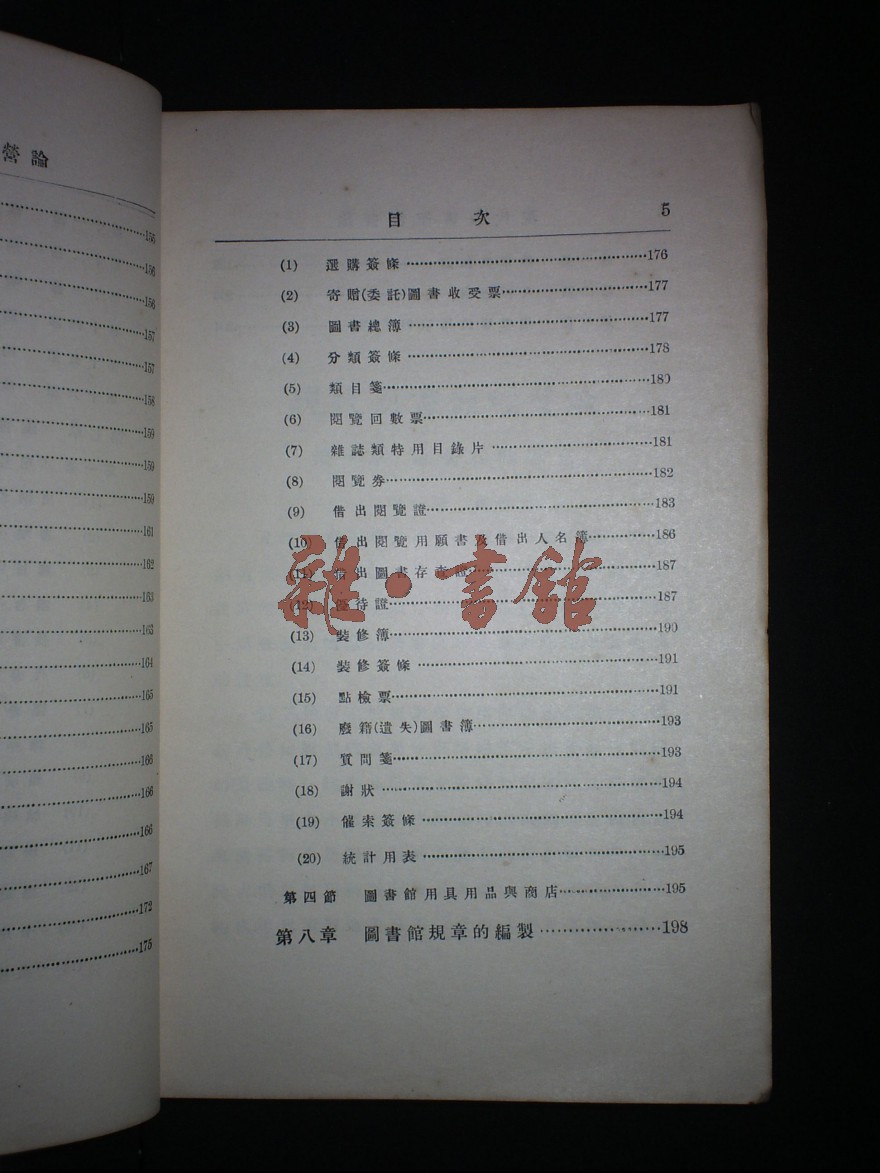 營論
155
156
156
157
157
158
159
159
159
161
162
163
163
164
165
165
166
166
166
167
172
175
目 次 5
(1) 選購簽條 176
(2) 寄贈(委託)圖書收受票 177
(3) 圖書總簿 177
(4) 分類簽條 178
(5) 類目箋 180
(6) 閱覽回數票 181
(7) 雜誌類特用目錄片 181
(8) 閱覽券 182
(9) 借出閱覽證 183
(10) 借出閱覽用願書及借出人名簿 186
(11) 借出圖書存查 187
(12) 優待證 187
(13) 裝修簿 190
(14) 裝修簽條 191
(15) 點檢票 191
(16) 廢籍(遺失)圖書簿 193
(17) 質問箋 193
(18) 謝狀 194
(19) 催索簽條 194
(20) 統計用表 195
第四節 圖書館用具用品與商店 195
第八章 圖書館規章的編製 198
雜·書館